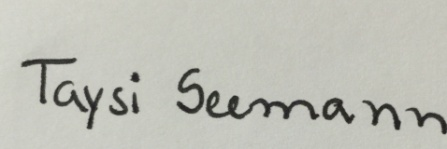 Taysi Seemann